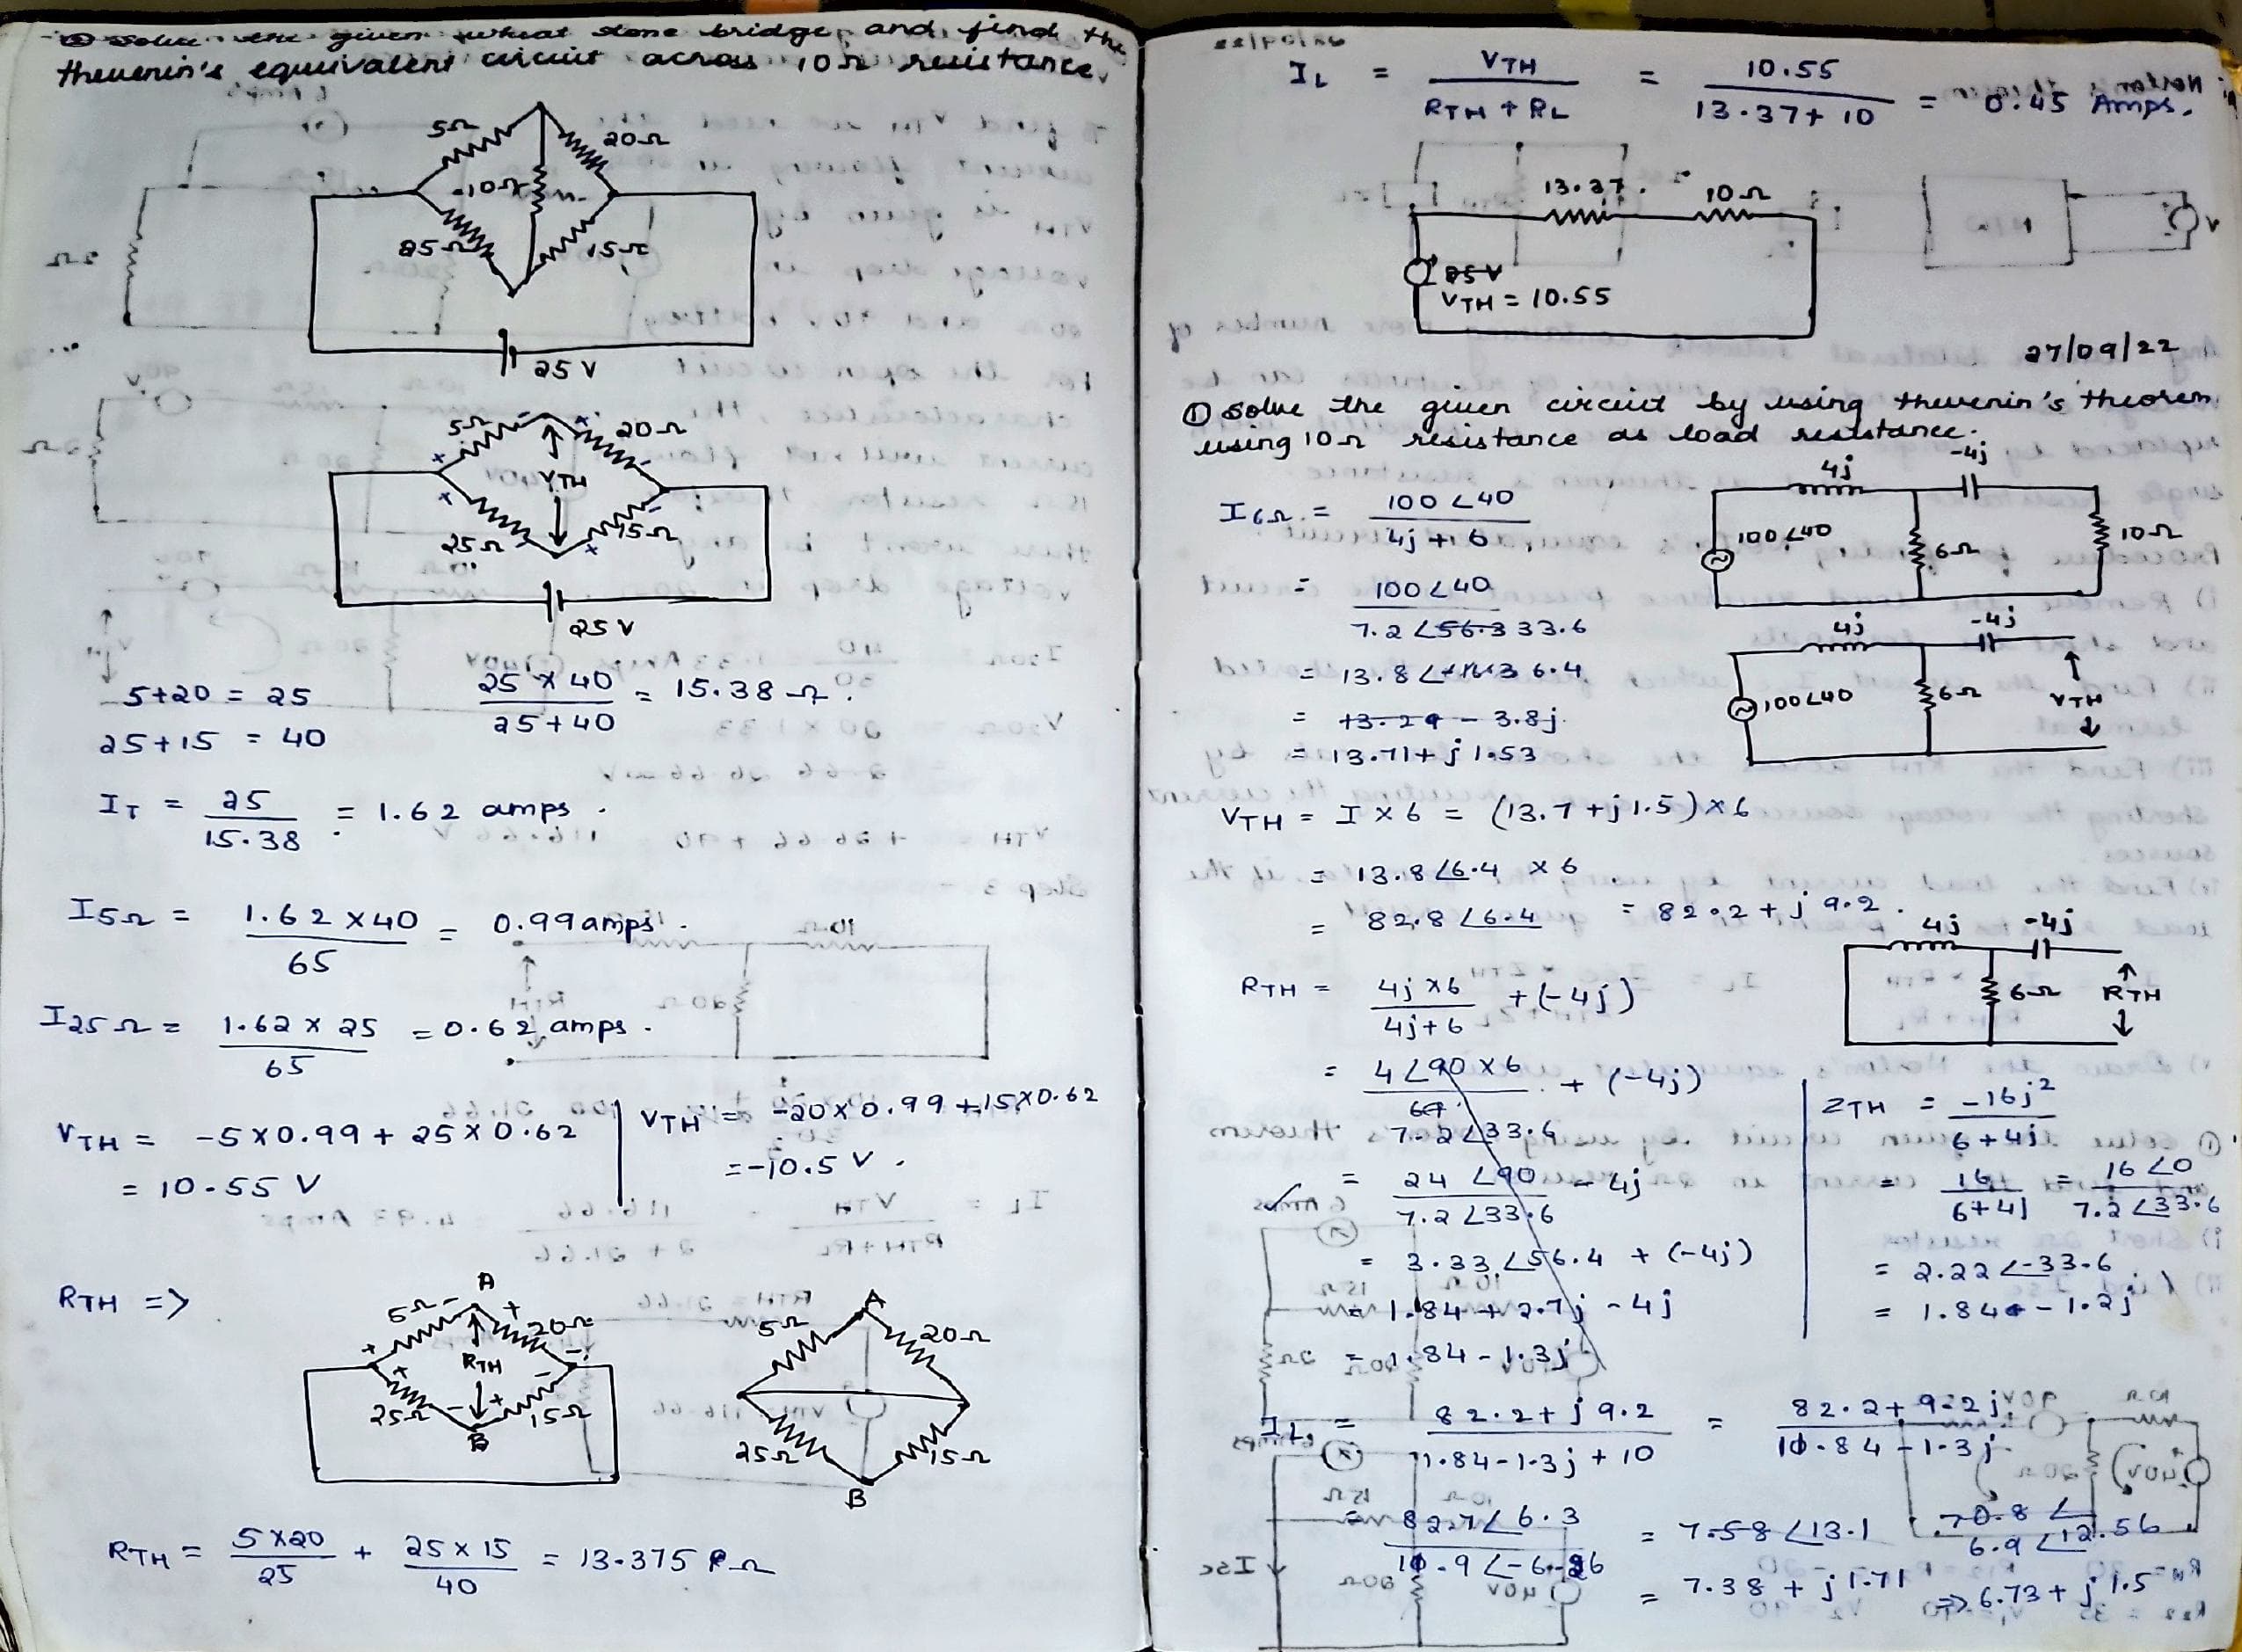 ② Solve the given wheat stone bridge, and find the
thevenin's equivalent circuit across 10Ω resistance.
5Ω
20Ω
10Ω
25Ω
15Ω
25 V
5Ω
20Ω
VTH
25Ω
15Ω
25 V
5+20 = 25
25+15 = 40
25 x 40 / 25+40 = 15.38 Ω.
IT = 25 / 15.38 = 1.62 amps.
I5Ω = 1.62 x 40 / 65 = 0.99 amps.
I25Ω = 1.62 x 25 / 65 = 0.62 amps.
VTH = -5 x 0.99 + 25 x 0.62
= 10.55 V
VTH = -20 x 0.99 + 15 x 0.62
= -10.5 V.
RTH =>
A
5Ω
20Ω
RTH
25Ω
15Ω
B
A
5Ω
20Ω
25Ω
15Ω
B
RTH = 5 x 20 / 25 + 25 x 15 / 40 = 13.375 Ω
IL = VTH / RTH + RL = 10.55 / 13.37 + 10 = 0.45 Amps.
13.37
10Ω
25V
VTH = 10.55
27/09/22
① Solve the given circuit by using thevenin's theorem
using 10Ω resistance as load resistance.
4j
-4j
100∠40
6Ω
10Ω
I6Ω = 100∠40 / 4j + 6
= 100∠40 / 7.2 ∠56.3 33.6
= 13.8 ∠ 6.4
= 13.29 - 3.8j
= 13.71 + j 1.53
4j
-4j
100∠40
6Ω
VTH
VTH = I x 6 = (13.7 + j 1.5) x 6
= 13.8 ∠6.4 x 6
= 82.8 ∠6.4 = 82.2 + j 9.2.
4j
-4j
6Ω
RTH
RTH = 4j x 6 / 4j + 6 + (-4j)
= 4∠90 x 6 / 7.2∠33.6 + (-4j)
= 24 ∠90 / 7.2 ∠33.6 - 4j
= 3.33 ∠56.4 + (-4j)
= 1.84 + 2.7j - 4j
= 1.84 - 1.3j
ZTH = -16j² / 6 + 4j
= 16 / 6 + 4j = 16 ∠0 / 7.2 ∠33.6
= 2.22 ∠-33.6
= 1.84 - 1.2j
IL = 82.2 + j 9.2 / 1.84 - 1.3j + 10 = 82.2 + 9.2j / 11.84 - 1.3j
= 82.7∠6.3 / 11.9 ∠-6.26 = 7.58 ∠13.1
70.8 ∠ / 6.9 ∠12.56
= 7.38 + j 1.71 => 6.73 + j 1.5